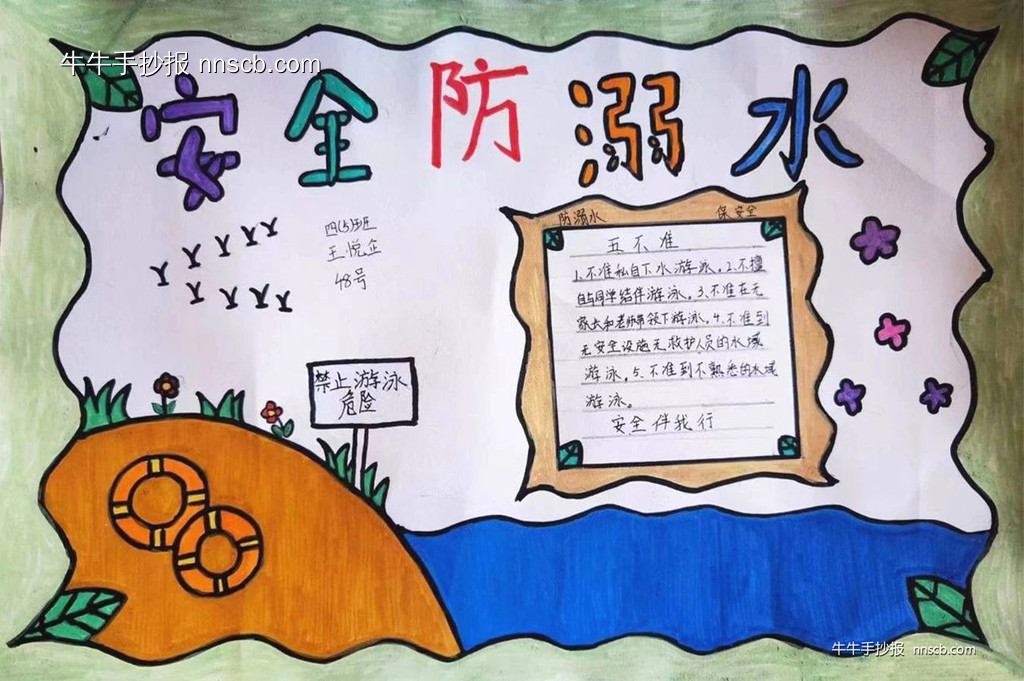 牛牛手抄报 nnscb.com
安全防溺水
四(5)班
王悦企
48号
防溺水 保安全
五不准
1、不准私自下水游泳。2、不擅
自与同学结伴游泳。3、不准在无
家长和老师带领下游泳。4、不准到
无安全设施无救护人员的水域
游泳。5、不准到不熟悉的水域
游泳。
安全伴我行
禁止游泳
危险
牛牛手抄报 nnscb.com